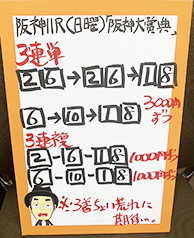 阪神11R(日曜)「阪神大賞典」
3連単
2 6→2 6→1 8
6→10→1 8 3000円ずつ
3連複
2-6-1 8 1000円ずつ
6-10-1 8 1000円ずつ